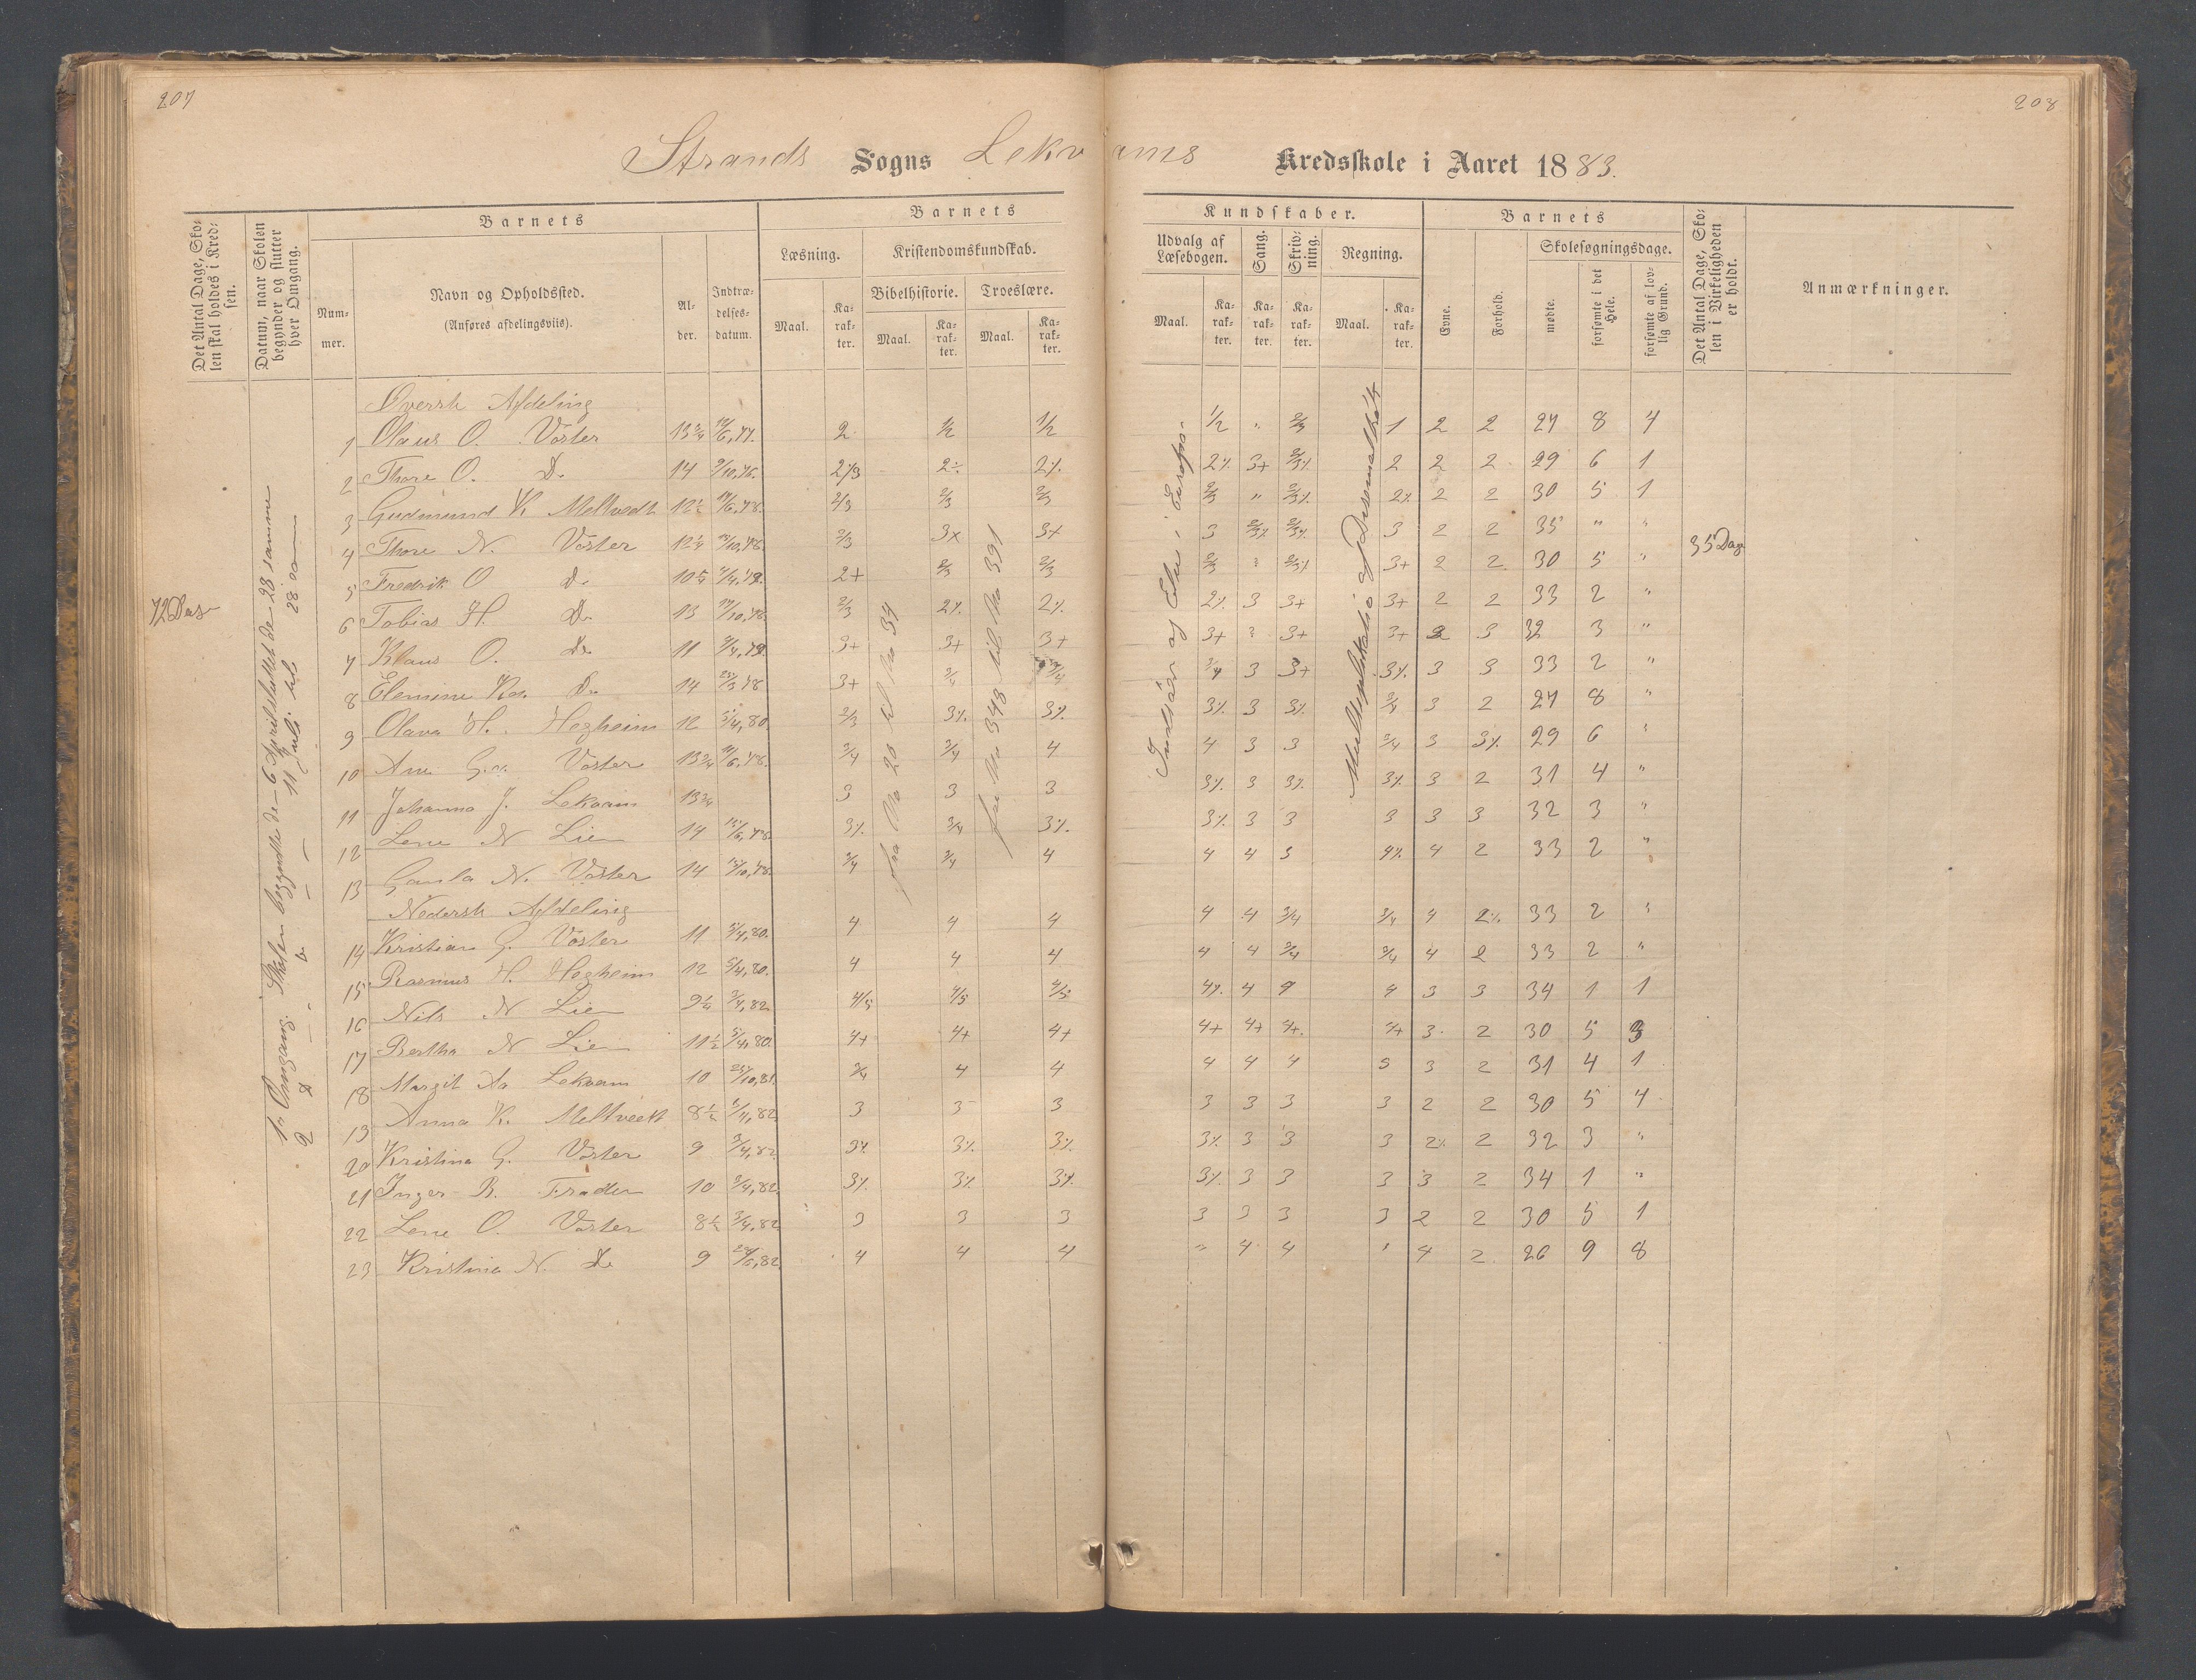 207
208
Strands Sogns Lekvams Kredsskole i Aaret 1883.
Det Antal Dage, Skolen skal holdes i Kredsen.
Datum, naar Skolen begynder og slutter hver Omgang.
Barnets
Nummer.
Navn og Opholdssted.
(Anføres afdelingsviis).
Alder.
Indtrædelsesdatum.
Barnets Kundskaber.
Læsning.
Maal. Karakter.
Kristendomskundskab.
Bibelhistorie. Troeslære.
Maal. Karakter. Maal. Karakter.
Udvalg af Læsebogen.
Maal. Karakter.
Sang.
Karakter.
Skrivning.
Karakter.
Regning.
Maal. Karakter.
Barnets
Evne.
Forhold.
Skolesøgningsdage.
mødte.
forsømte i det Hele.
forsømte af lovlig Grund.
Det Antal Dage, Skolen i Virkeligheden er holdt.
Anmærkninger.
72 Dage
1. Omgang. Skolen begyndte de 6 April sluttet de 28 samme
2 D 11 Juli 28
fra No 20 til No 34
fra No 348 til No 391
Indiær og Elve i Europa
Multiplikatio af Desemalbrøk
35 Dag
Øverste Afdeling
1 Olaus O. Voster 13 3/4 2 1/2 1/2 1/2 " 2/3 1 2 2 27 8 7
2 Thore O. Do 14 9/10,76. 2 1/3 2÷ 2% 2% 3+ 2/3% 2 2 2 29 6 1
3 Gudmund K Meltvedt 12 1/2 2/3 2/3 2/3 2/3 " 2/3% 2% 2 2 30 5 1
4 Thore N. Voster 12 1/4 2/3 3+ 3+ 3 2/3% 2/3% 3 2 2 35 " "
5 Fredrik O Do 10 3/4 2+ 2/3 2/3 2/3 " 2/3% 3+ 2 2 30 5 "
6 Tobias H. Do 13 2/3 2% 2% 2% 3 3+ 3+ 2 2 33 2 "
7 Klaus O. Do 11 3+ 3+ 3+ 3+ 3+ 3+ 2 3 32 3 "
8 Elemine Do 14 3+ 3/4 3/4 3/4 3 3+ 3% 3 3 33 2 "
9 Olava H. Hegheim 12 5/4,80 2/3 3% 3% 3% 3 3% 3/4 3 2 27 8 "
10 Ane G. Voster 13 3/4 3/4 3/4 4 4 3 3 3/4 3 3% 29 6 "
11 Johanna J. Lekvam 13 3/4 3 3 3 3% 3 3% 3% 3 2 31 4 "
12 Lene N Lie 14 3% 3/4 3% 3% 3 3 3 3 3 32 3 "
13 Gunla N. Voster 14 3/4 3/4 4 4 4 3 4% 4 2 33 2 "
Nederste Afdeling
14 Kristian G. Voster 11 5/4,80. 4 4 4 4 4 3/4 3/4 4 2% 33 2 "
15 Rasmus H. Hegheim 12 5/4,80. 4 4 4 4 4 3/4 3/4 4 2 33 2 "
16 Nils N Lie 9 1/4 3/4,82 4/5 4/5 4/5 4% 4 4 4 3 3 34 1 1
17 Bertha N Lie 11 1/2 5/4,80. 4+ 4+ 4+ 4+ 4+ 4+ 4+ 3 2 30 5 3
18 Margit Aa Lekvam 10 3/4 4 4 4 4 4 3 3 2 31 4 1
19 Anna K. Meltvedt 8 1/2 3 3 3 3 3 3 3 2 2 30 5 4
20 Kristina G. Voster 9 3/4,82. 3% 3% 3% 3% 3 3 3 2% 2 32 3 "
21 Inger R. 10 3/4,82. 3% 3% 3% 3% 3 3 3 3 2 34 1 "
22 Lene O. Voster 8 1/2 3/4,82 3 3 3 3 3 3 3 2 2 30 5 1
23 Kristina N. Do 9 4 4 4 " 4 4 " 4 2 26 9 8